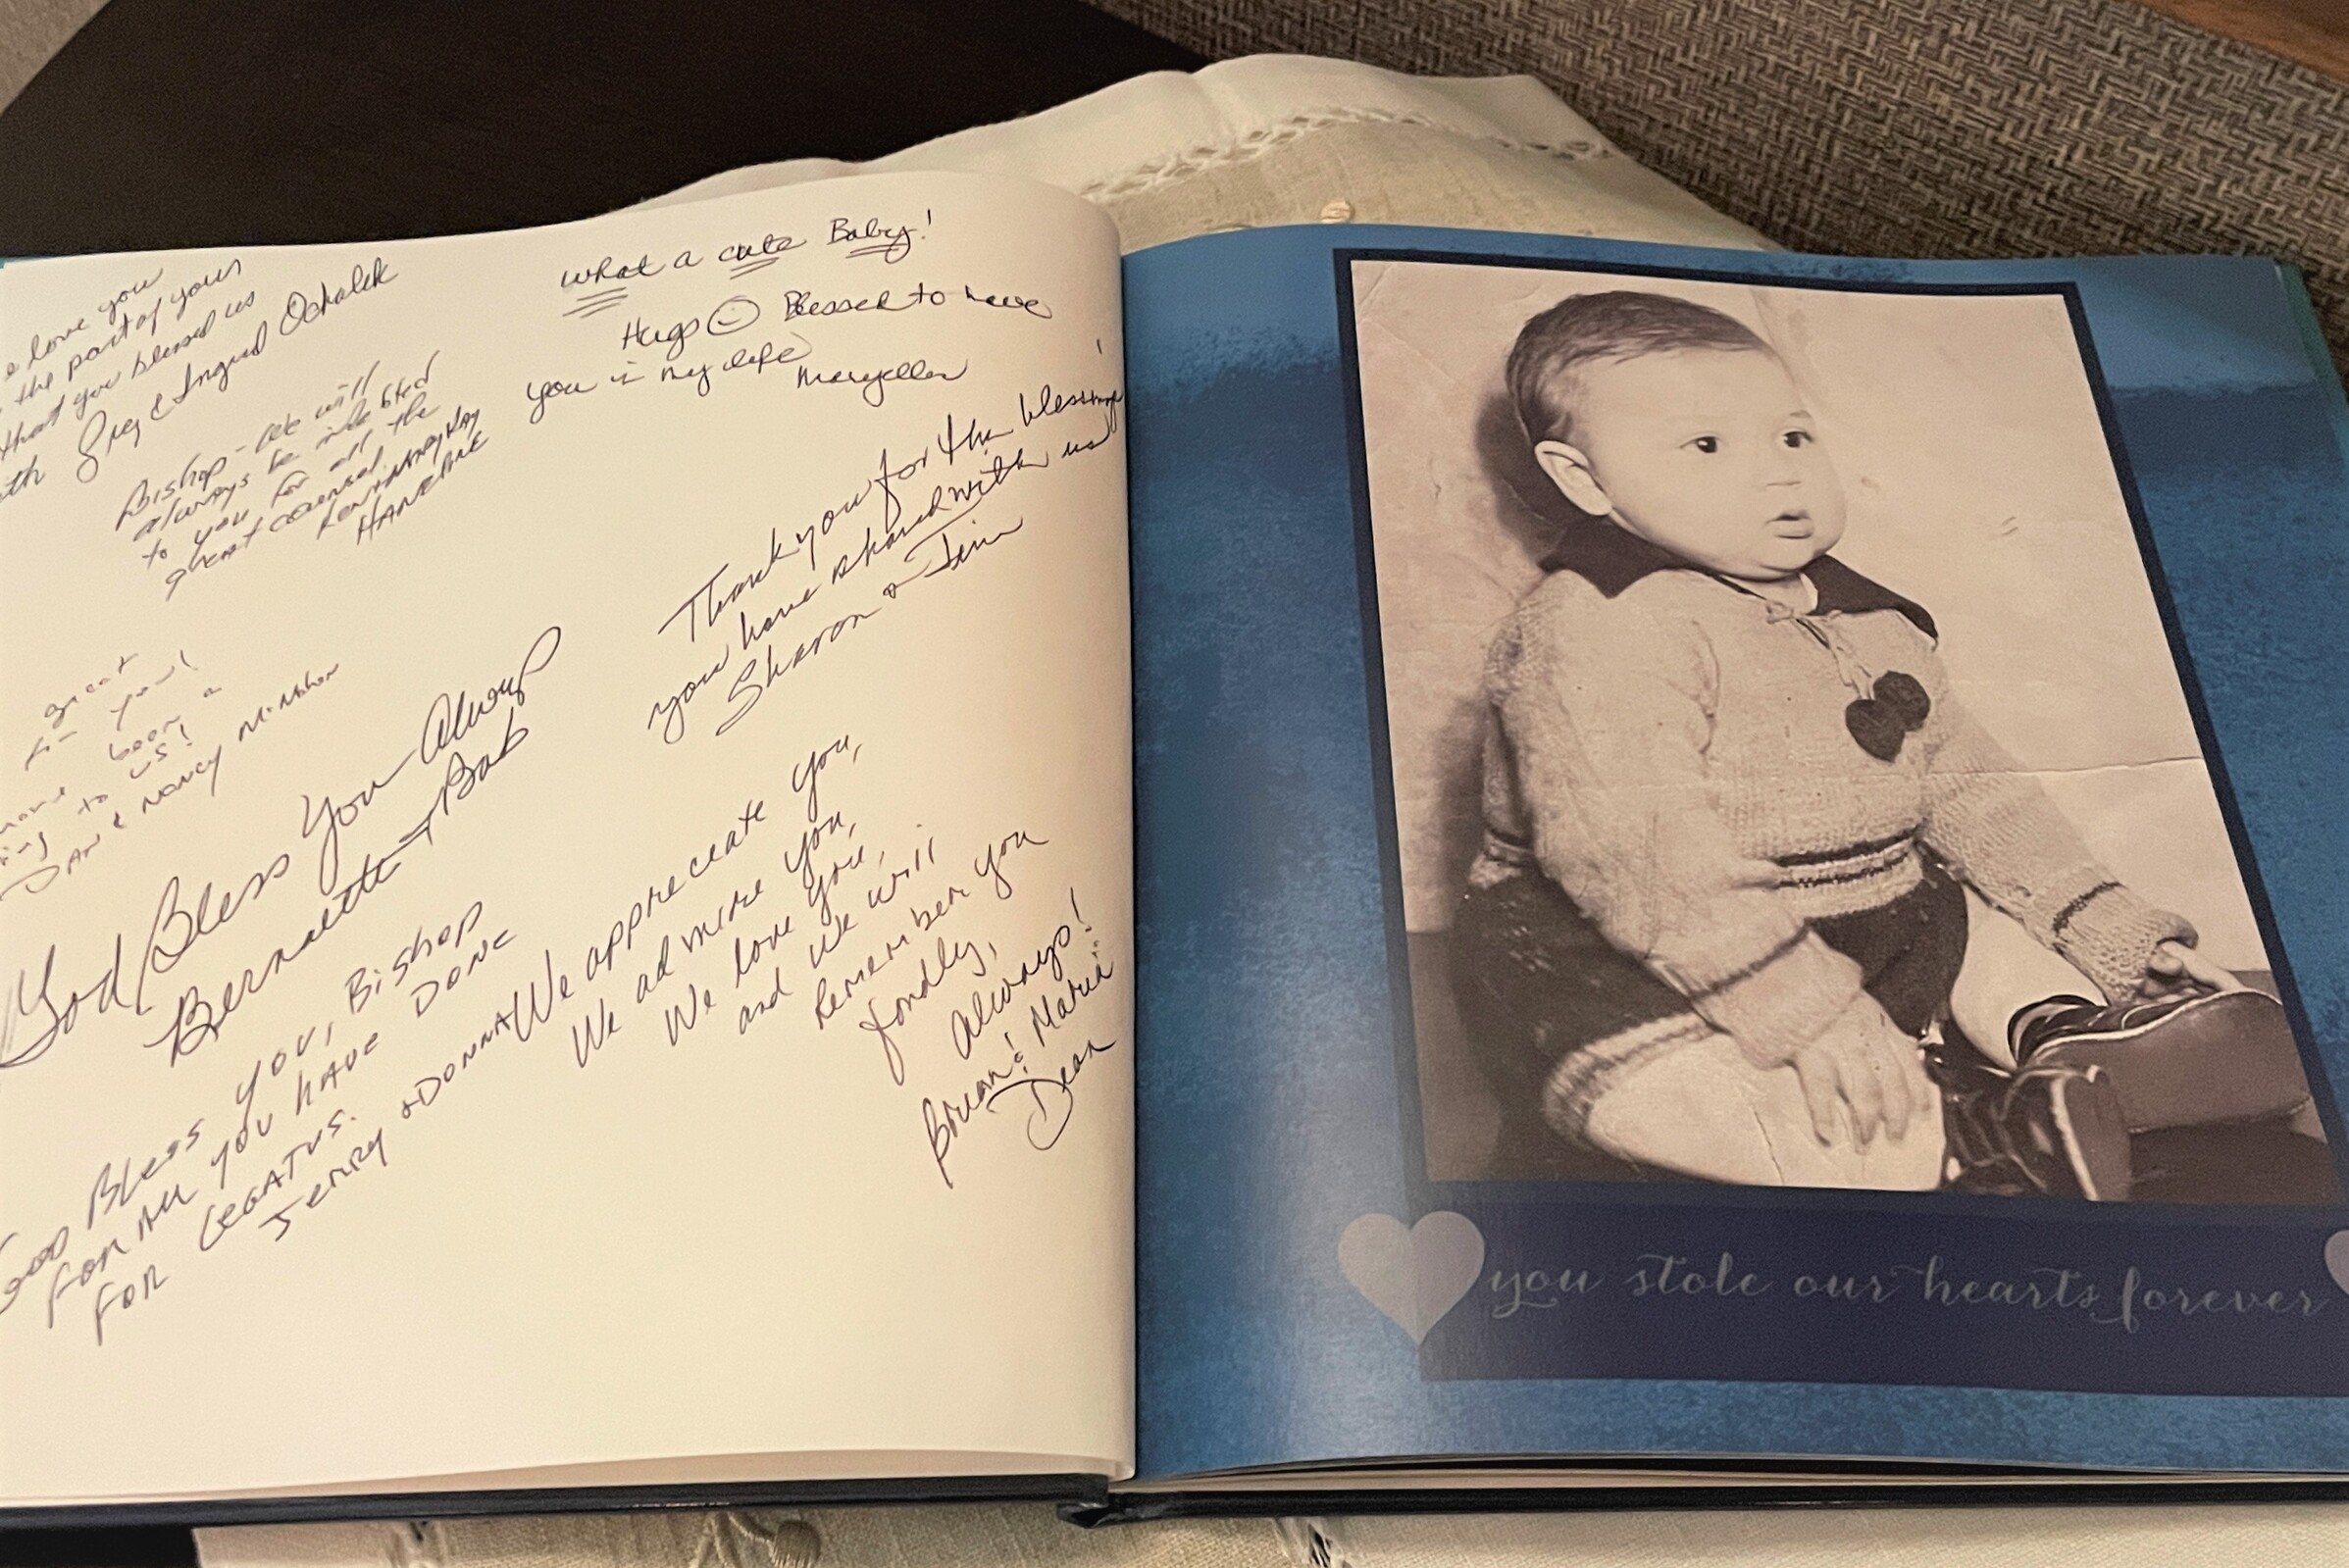 love you
the part of your
that you blessed us
Greg & Ingrid Ochalek
Bishop - We will
always be indebted
to you for all the
great counsel.
HANEHAE
great
you!
been a
to us!
DAN & NANCY McMahon
God Bless You Always
Bernadette + Bob
GOD BLESS YOU, BISHOP
FOR ALL YOU HAVE DONE
FOR LEGATUS.
JERRY & DONNA
What a cute Baby!
Hugs ☺ Blessed to have
you in my life
Maryellen
Thank you for the blessings
you have shared with us!
Sharon & Jim
We appreciate you,
We admire you,
We love you,
and we will
Remember you
fondly,
Always!
Brian & Maria
Dean
you stole our hearts forever